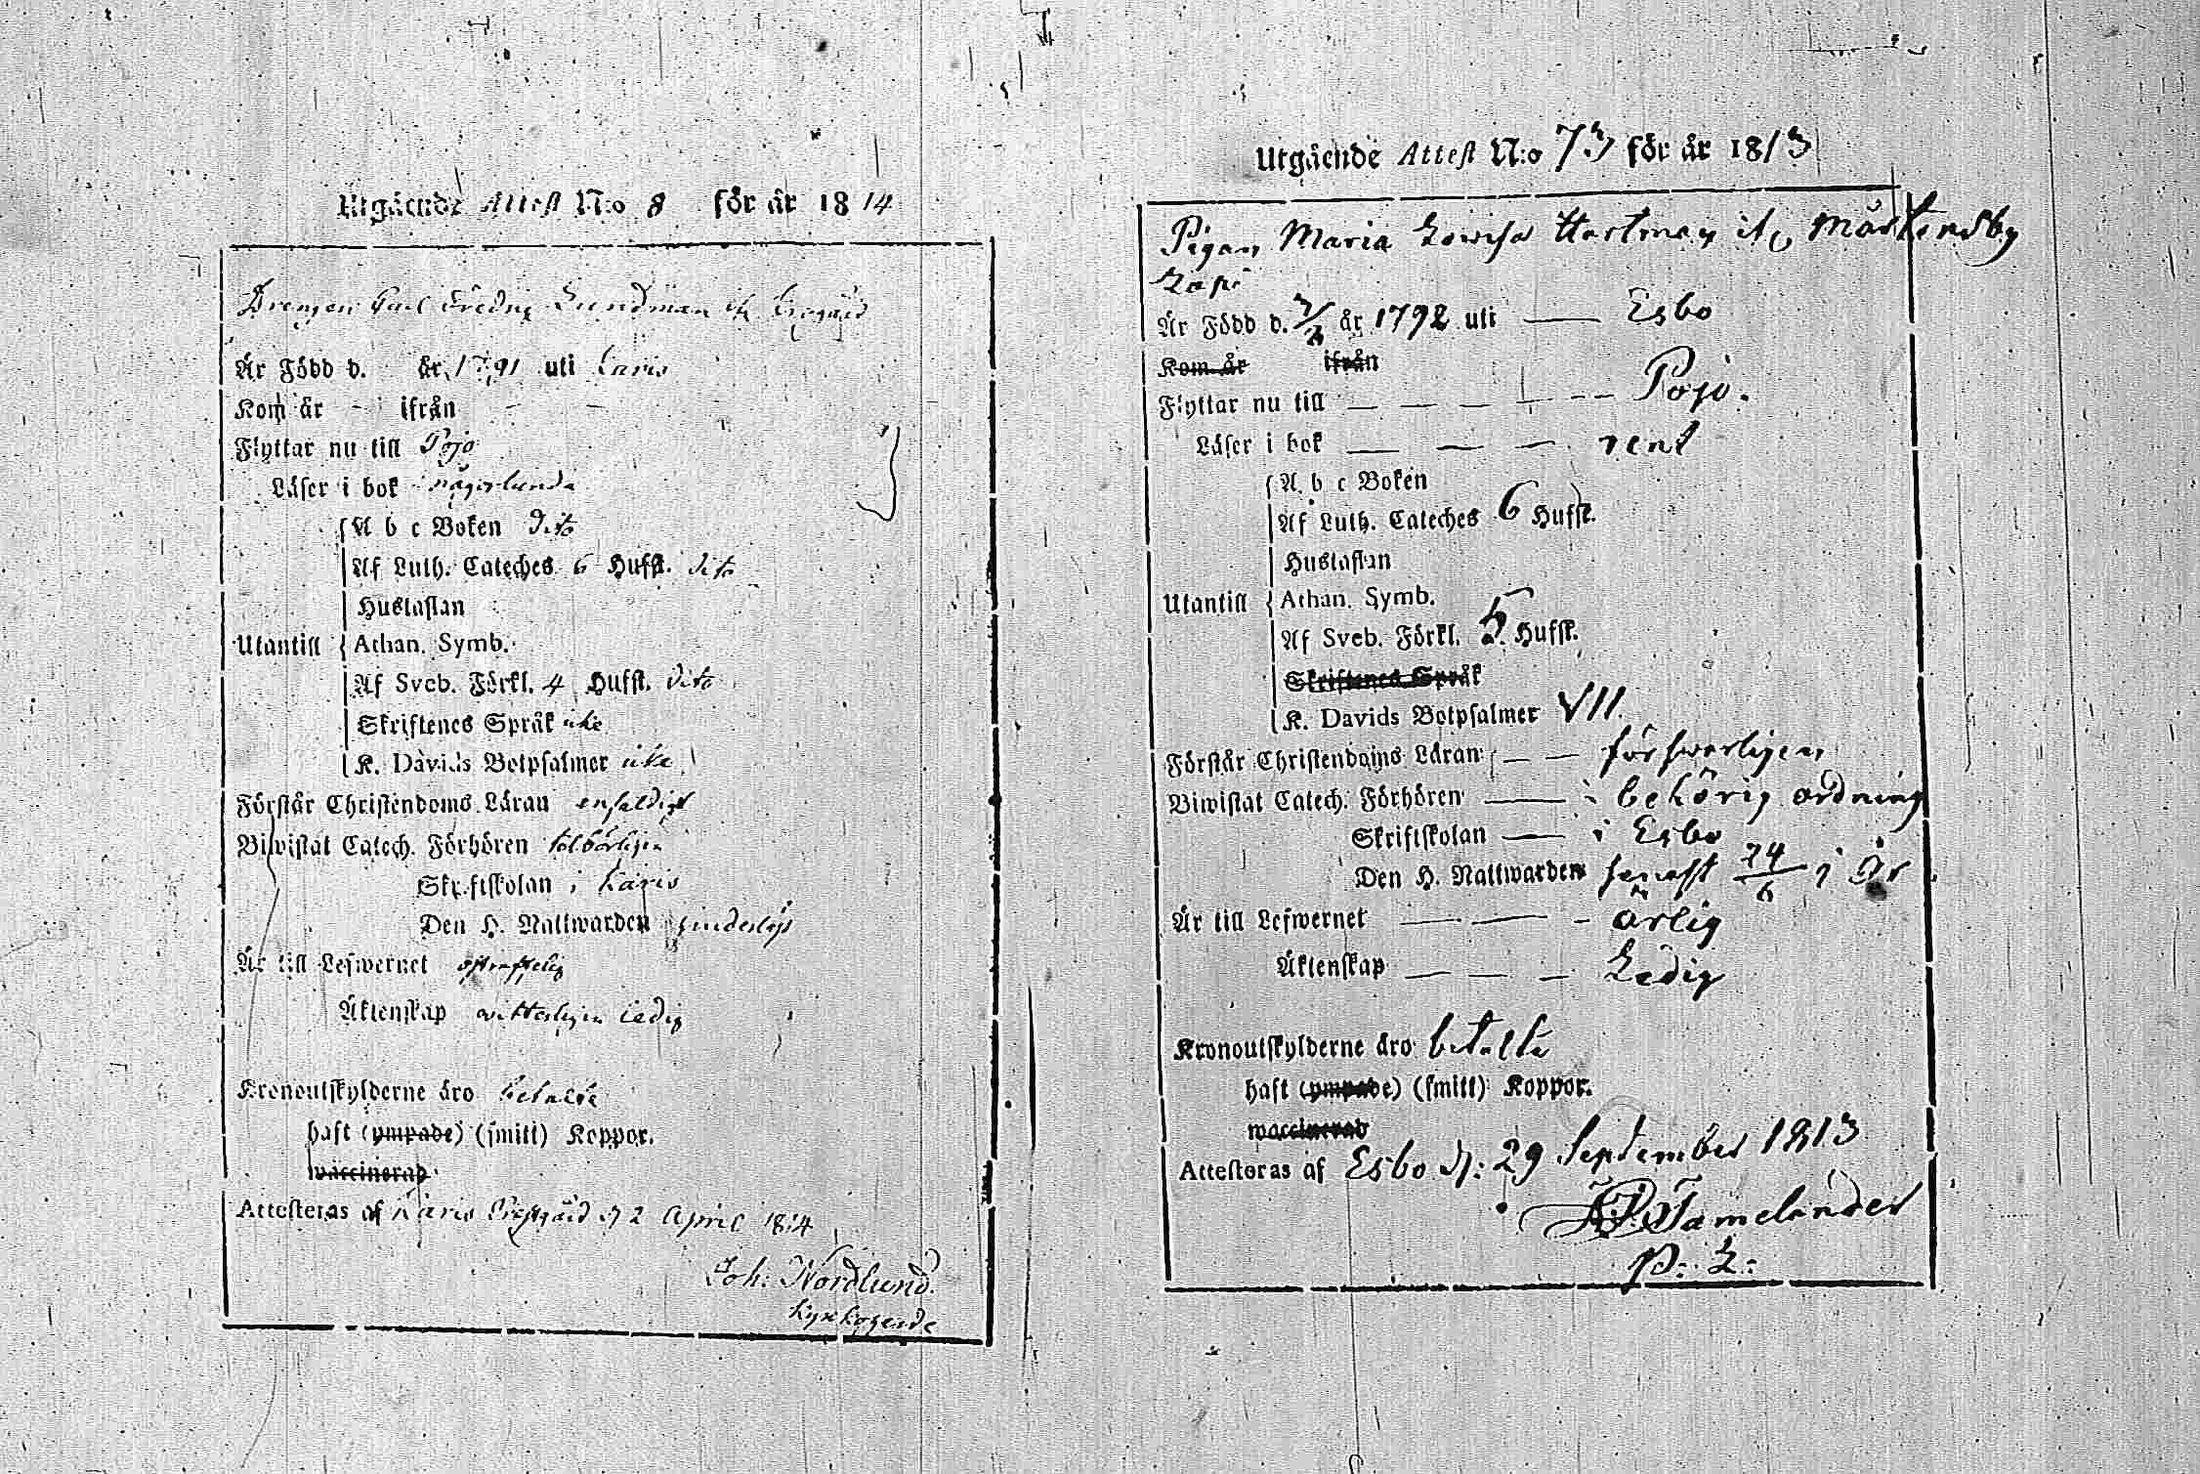 Utgående Attest N:o 8 för år 1814
Drengen Carl Fredric Lundman
Är Född d. år 1791 uti Karis
Kom år - ifrån - -
Flyttar nu till Pojo
Läser i bok någorlunda
A b c Boken dito
Af Luth. Cateches 6 Hufst. dito
Hustaflan
Utantill Athan. Symb.
Af Sveb. Förkl. 4 Hufst. dito
Skriftenes Språk icke
K. Davids Botpsalmer icke
Förstår Christendoms Läran enfaldigt
Biwistat Catech. Förhören
Skriftskolan i Karis
Den H. Nattwarden
Är till Lefwernet
Äktenskap witterligen Ledig
Kronoutskylderne äro betalde
haft (ympade) (smitt) Koppor.
waccinerad
Attesteras af Karis Prestgård d 2 April 1814
Joh: Nordlund.
Kyrkoherde
Utgående Attest N:o 73 för år 1813
Pigan Maria Lowisa Hartman Mårtensby
Är Född d. år 1792 uti — Esbo
Kom år ifrån
Flyttar nu till — — — — — — Pojo.
Läser i bok — — — rent
A b c Boken
Af Luth. Cateches 6 Hufst.
Hustaflan
Utantill Athan. Symb.
Af Sveb. Förkl. 5 Hufst.
Skriftenes Språk
K. Davids Botpsalmer VII.
Förstår Christendoms Läran — — försvarligen
Biwistat Catech. Förhören — i behörig ordning
Skriftskolan — i Esbo
Den H. Nattwarden senast 24/6 i År
Är till Lefwernet — — - ärlig
Äktenskap — — — Ledig
Kronoutskylderne äro betalta
haft (ympade) (smitt) Koppor.
waccinerad
Attesteras af Esbo d: 29 September 1813
Tamelander
P: L: